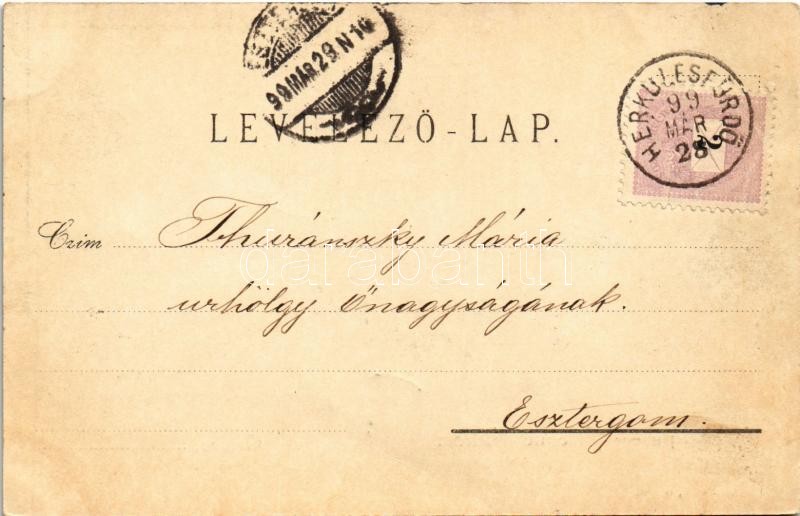 99 MÁR 29 N 10
HERKULESFÜRDŐ
99
MÁR
28
2
LEVELEZŐ-LAP.
Czim Thuránszky Mária
darabanth
urhölgy Őnagyságának.
Esztergom.